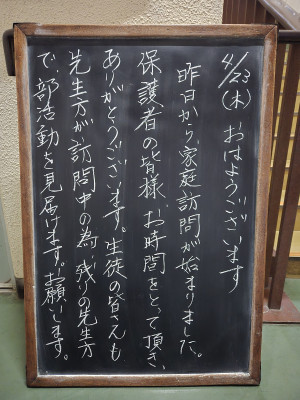 4/23(木) おはようございます
昨日から、家庭訪問が始まりました。
保護者の皆様、お時間をとって頂き、
ありがとうございます。生徒の皆さんも
先生方が訪問中の為、残りの先生方
で、部活動を見届けます。お願いします。